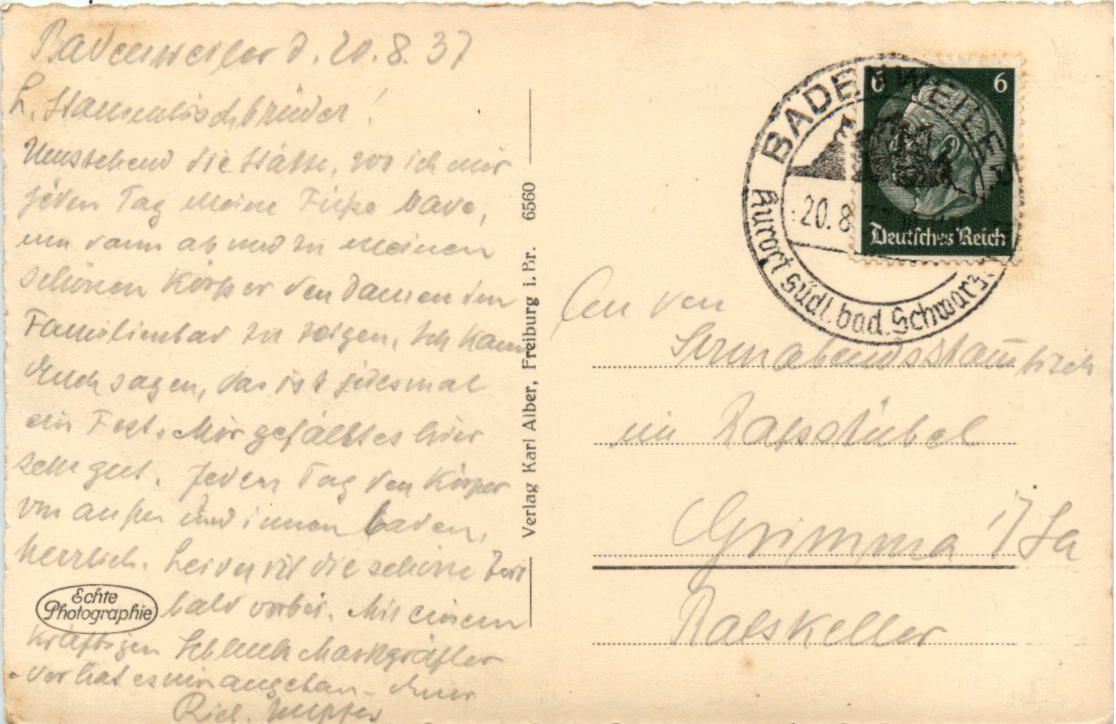 Badenweiler d. 20.8.37
L. Stammtischbrüder!
Umstehend die Stätte, wo ich mir
jeden Tag meine Füße bade,
um dann ab und zu meinen
schönen Körper den Damen im
Familienbad zu zeigen. Ich kann
Euch sagen, das ist jedesmal
ein Fest. Mir gefällt es hier
sehr gut. Jeden Tag den Körper
von außen und innen baden,
herrlich. Leider ist die schöne Zeit
bald vorbei. Mit einem
kräftigen Schluck Markgräfler
- der hat es mir angetan - Euer
Rich.
Echte
Photographie
Verlag Karl Alber, Freiburg i. Br. 6560
BADENWEILER
20.8
Kurort südl. bad. Schwarz
6 6
Deutsches Reich
An den
Sonnabendsstammtisch
im Ratsstübel
Grimma i/Sa
Ratskeller